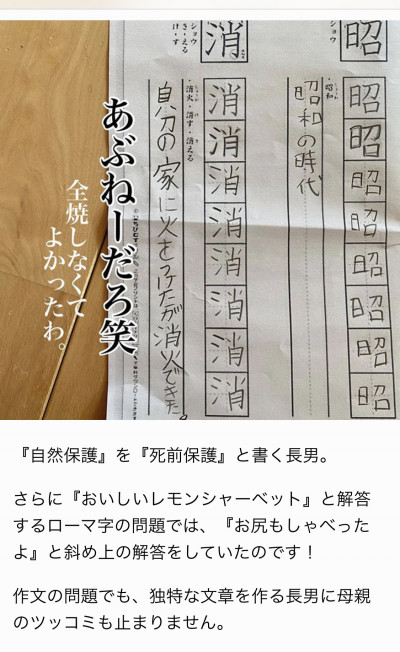 昭
ショウ
昭
昭
昭
昭
昭
昭
昭
昭
・昭和
昭和の時代
消
ショウ
き・える
け・す
消
消
消
消
消
消
消
消
・消火・消す・消える
自分の家に火をつけたが消火できた。
あぶねーだろ笑
全焼しなくて
よかったわ。
『自然保護』を『死前保護』と書く長男。
さらに『おいしいレモンシャーベット』と解答
するローマ字の問題では、『お尻もしゃべった
よ』と斜め上の解答をしていたのです！
作文の問題でも、独特な文章を作る長男に母親
のツッコミも止まりません。